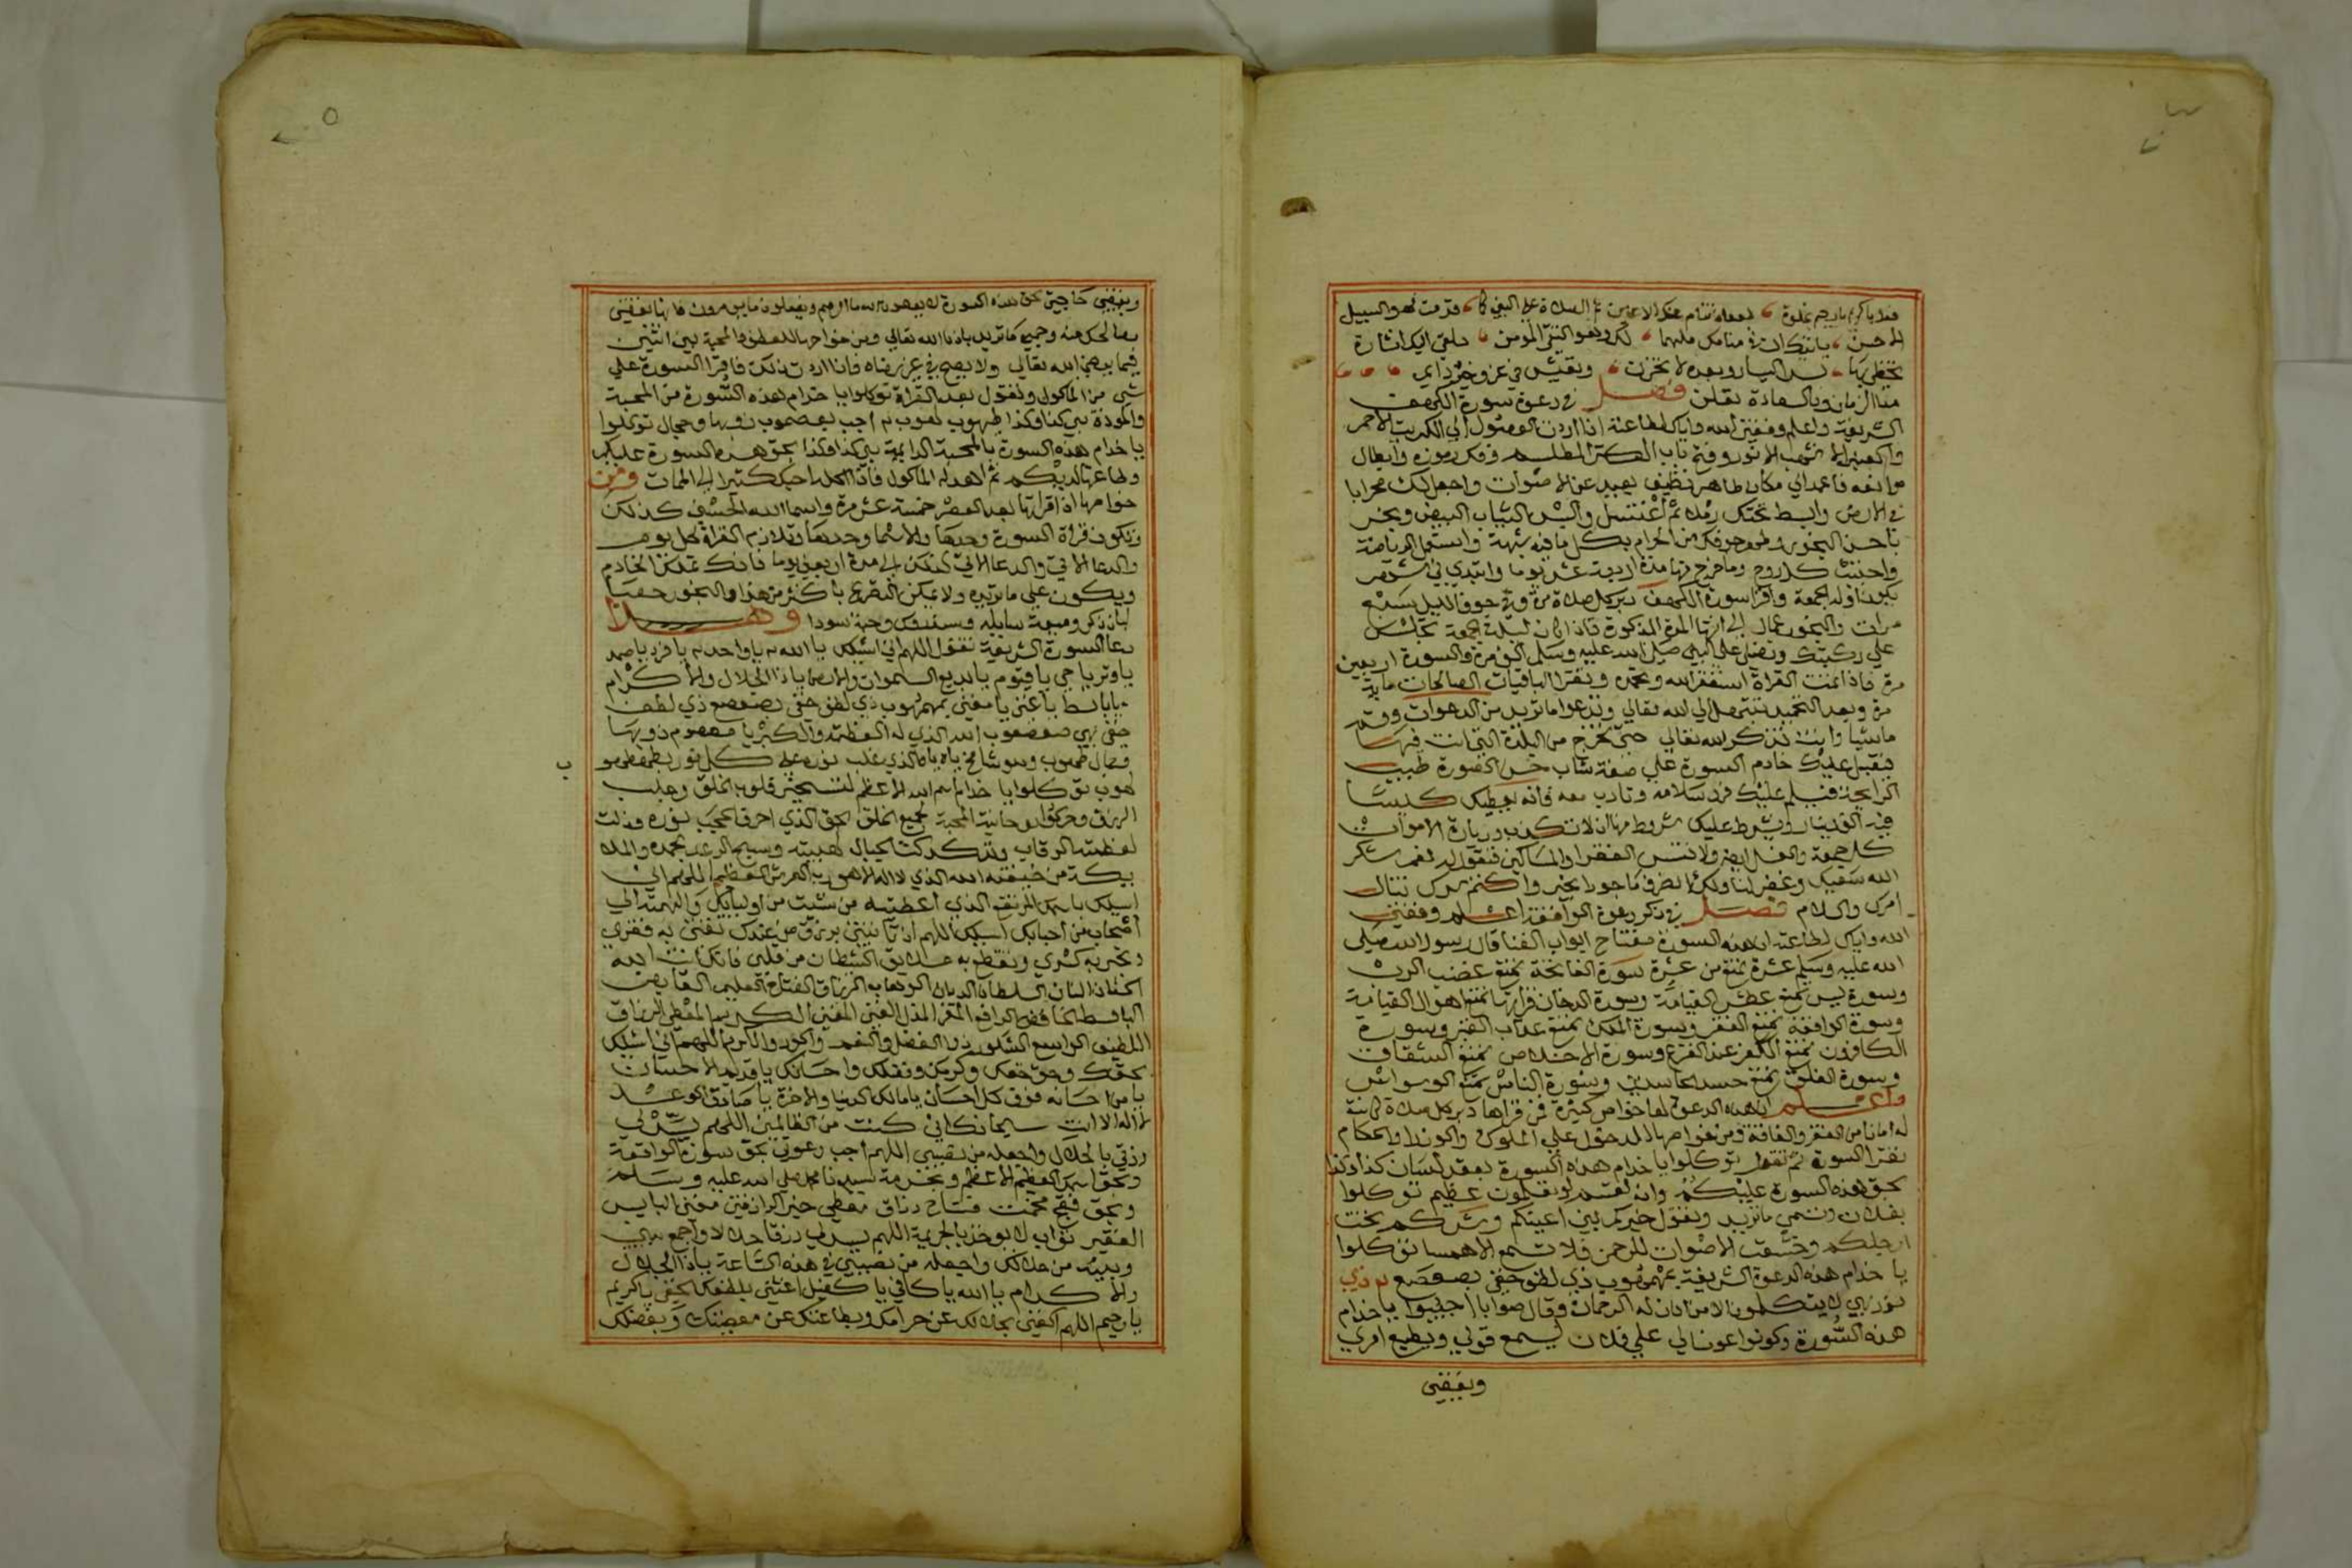 الاحسن يأتيك ان في منامك ملهما لكن وهو النبي المؤمن يلقي اليك اشارة
تحظى بها بعده لا تحزن وتعيش في عز وخير دايم
منا الزمان وبالسعادة تعلن فصل في دعوة سورة الكهف
الشريفة واعلم وفقني الله واياك لطاعته اذا اردت الوصول الى الكبريت الاحمر
وفتح باب الكنز المطلسم وفك رموزه وابطال
موانعه فاعمد الي مكان طاهر نظيف بعيد عن الاصوات واجعل لك محرابا
في الارض وابسط تحتك رمله ثم اغتسل والبس الثياب البيض وبخر
باحسن البخور وطهر جوفك من الحرام وكل ما فيه شبهة واستعمل الرياضة
واجتنب كل روح وما خرج منها مدة اربعة عشر يوما وابتدي في شهر
يكون اوله الجمعة واقرا سورة الكهف دبر كل صلاة مرة وفي جوف الليل سبع
مرات والبخور عمال الى انتها المدة المذكورة فاذا كان ليلة الجمعة تجلس
علي ركبتك وتصلي على النبي صلى الله عليه وسلم الف مرة والسورة اربعين
مرة فاذا تمت القراة استغفر الله وتحمده وتقرا الباقيات الصالحات ماية
مرة وبعد التحميد تبتهل الي الله تعالي وتدعوا ما تريد من الدعوات وقم
ماشيا وانت تذكر الله تعالي حتى تخرج من البلدة التي انت فيها
فيقبل عليك خادم السورة علي صفة شاب حسن الصورة طيب
الرايحة فيسلم عليك فرد سلامه وتادب معه فانه يعطيك كيسا
فيه الف دينار ويشرط عليك شروط منها ان لا تكذب وزيارة الاموات
كل جمعة والغسل ولا تنس الفقرا والمساكين فتقول له نعم شكر
الله سعيك وغفر لنا ولك انصرف ماجورا بخير واكتم سرك تنال
امرك والسلام فصل في ذكر دعوة الواقعة اعلم وفقني
الله واياك لطاعته ان هذه السورة مفتاح ابواب الغنا قال رسول الله صلى
الله عليه وسلم عشرة تمنع من عشرة سورة الفاتحة تمنع غضب الرب
وسورة يس تمنع عطش القيامة وسورة الدخان قراتها تمنع اهوال القيامة
وسورة الواقعة تمنع الفقر وسورة الملك تمنع عذاب القبر وسورة
الكافرون تمنع الكفر عند النزع وسورة الاخلاص تمنع الشقاق
وسورة الفلق تمنع حسد الحاسدين وسورة الناس تمنع الوسواس
واعلم ان هذه الدعوة لها خواص كثيرة فمن قراها دبر كل صلاة كانت
له امانا من الفقر والفاقة ومن خواصها للدخول علي الملوك والوزرا والحكام
تقرا السورة ثم تقول توكلوا يا خدام هذه السورة بعقد لسان كذا وكذا
بحق هذه السورة عليكم وانه لقسم لو تعلمون عظيم توكلوا
بفلان وتسمي ما تريد وتقول خيركم بين اعينكم وشركم تحت
ارجلكم وخشعت الاصوات للرحمن فلا تسمع الا همسا توكلوا
يا خدام هذه الدعوة الشريفة بمهمهوب ذي لطف خفي بصعصع ذي
نور بهي لا يتكلمون الا من اذن له الرحمان وقال صوابا اجيبوا يا خدام
هذه السورة وكونوا عونا لي علي فلان ليسمع قولي ويطيع امري
ويقضي
ويقضي حاجتي بحق هذه السورة لا يعصون الله ما امرهم ويفعلون ما يومرون فانها تقضي
مصالحك منه وجميع ما تريد باذن الله تعالي ومن خواصها للعطف والمحبة بين اثنين
فيما يرضي الله تعالي ولا يصح في غير رضاه فاذا اردت ذلك فاقرا السورة علي
شي من الماكول وتقول بعد القراة توكلوا يا خدام هذه السورة من المحبة
والمودة بين كذا وكذا
يا خدام هذه السورة بالمحبة الدايمة بين كذا وكذا بحق هذه السورة عليكم
وطاعتها لديكم ثم اهد له الماكول فاذا اكله احبك كثيرا الي الممات ومن
خواصها اذا قراتها بعد العصر خمسة عشر مرة واسما الله الحسنى كذلك
وتكون قراة السورة وحدها والاسما وحدها وتلازم القراة كل يوم
والدعا الاتي كذلك الي مدة اربعين يوما فانك تملك الخادم
ويكون علي ما تريد ولا يمكن التصريح باكثر من هذا والبخور حصا
لبان ذكر وميعة سايلة وسندروس وحبة سودا وهذا
دعا السورة الشريفة تقول اللهم اني اسئلك يا الله يا واحد يا فرد يا صمد
يا وتر يا حي يا قيوم يا بديع السموات والارض يا ذا الجلال والاكرام
يا باسط يا غني يا مغني بمهمهوب ذي لطف خفي بصعصع ذي لطف
خفي بهي صعصعوب الله الذي له العظمة والكبريا
الذي غلب نوره علي كل نور
توكلوا يا خدام اسم الله الاعظم لتسخير قلوب الخلق وجلب
الرزق وحركوا روحانية المحبة لجميع الخلق بحق الذي احرق الحجب نوره وذلت
لعظمته الرقاب وتدكدكت الجبال لهيبته وسبح الرعد بحمده والملا
يكة من خيفته الله الذي لا اله الا هو رب العرش العظيم اللهم اني
اسيلك باسمك المرتفع الذي اعطيته من شيت من اوليايك والهمته الي
اصحابه من احبابك اسيلك اللهم ان تاتيني برزق من عندك تغني به فقري
وتجبر به كسري وتقطع به علايق الشيطان من قلبي فانك انت الله
الحنان المنان السلطان الديان الوهاب الرزاق الفتاح العليم القابض
الباسط الخافض الرافع المعز المذل الغني المغني الكريم المعطي الرزاق
اللطيف الواسع الشكور ذو الفضل والنعم والجود والكرم اللهم اني اسيلك
بحقك وحق حقك وكرمك وفضلك واحسانك يا قديم الاحسان
يا من احسانه فوق كل احسان يا مالك الدنيا والاخرة يا صادق الوعد
لا اله الا انت سبحانك اني كنت من الظالمين اللهم يسر لي
رزقي بالحلال واجعله من نصيبي اللهم اجب دعوتي بحق سورة الواقعة
وبحق اسمك العظيم الاعظم وبحرمة سيدنا محمد صلي الله عليه وسلم
وبحق فقج مخمت فتاح رزاق معطي خير الرازقين مغني البايس
الفقير تواب لا يواخذ بالجريمة اللهم يسر لي رزقا حلالا واجمع بيني
وبينه من حلالك واجعله من نصيبي في هذه الساعة يا ذا الجلال
والاكرام يا الله يا كافي يا كفيل اغثني بلطفك الخفي يا كريم
يا رحيم اللهم اكفني بحلالك عن حرامك وبطاعتك عن معصيتك وبفضلك